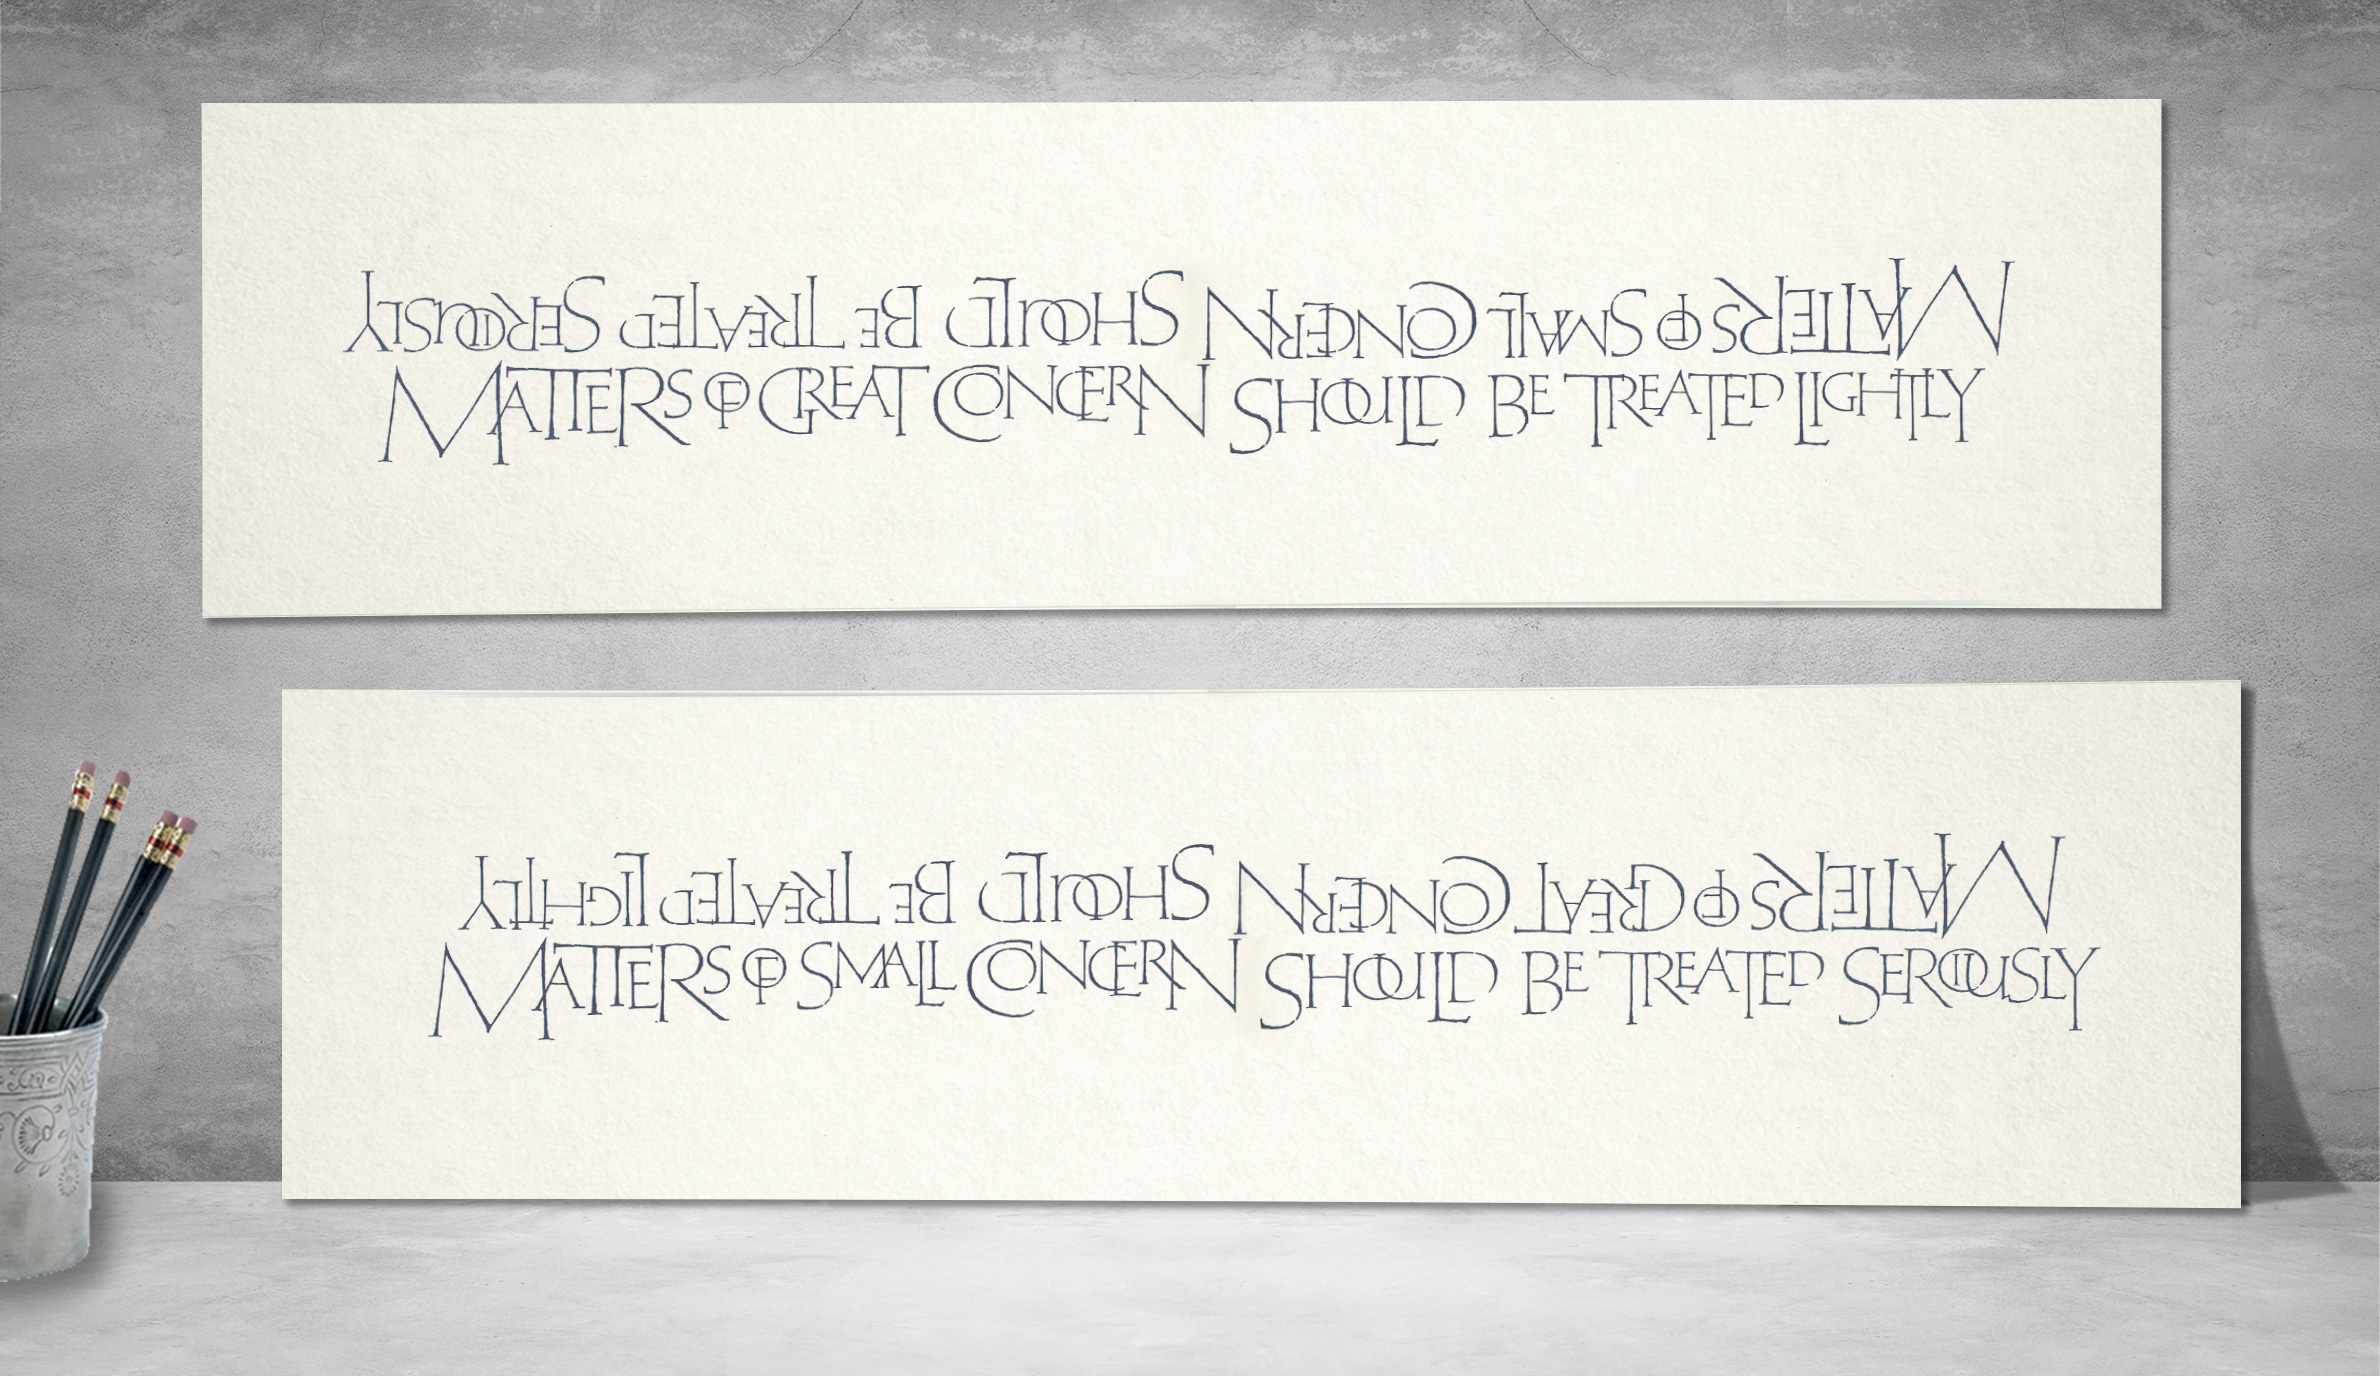 MATTERS OF SMALL CONCERN SHOULD BE TREATED SERIOUSLY
MATTERS OF GREAT CONCERN SHOULD BE TREATED LIGHTLY
MATTERS OF GREAT CONCERN SHOULD BE TREATED LIGHTLY
MATTERS OF SMALL CONCERN SHOULD BE TREATED SERIOUSLY